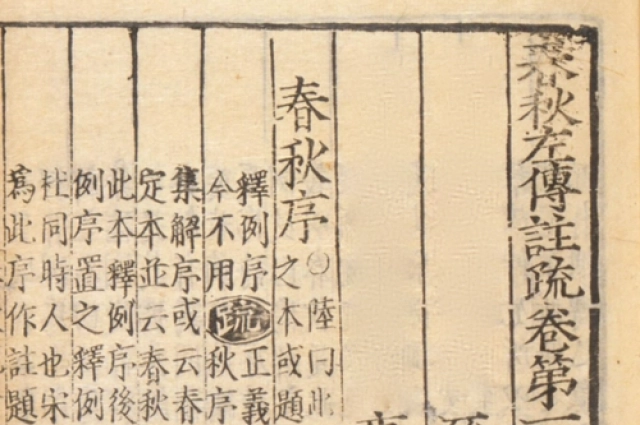 春秋左傳註疏卷第一
春秋序
○陸曰此
之本或題
釋例序
今不用
疏
正義
秋序
集解序或云春
定本並云春秋
此本釋例序後
例序置之釋例
杜同時人也宋
爲此序作註題